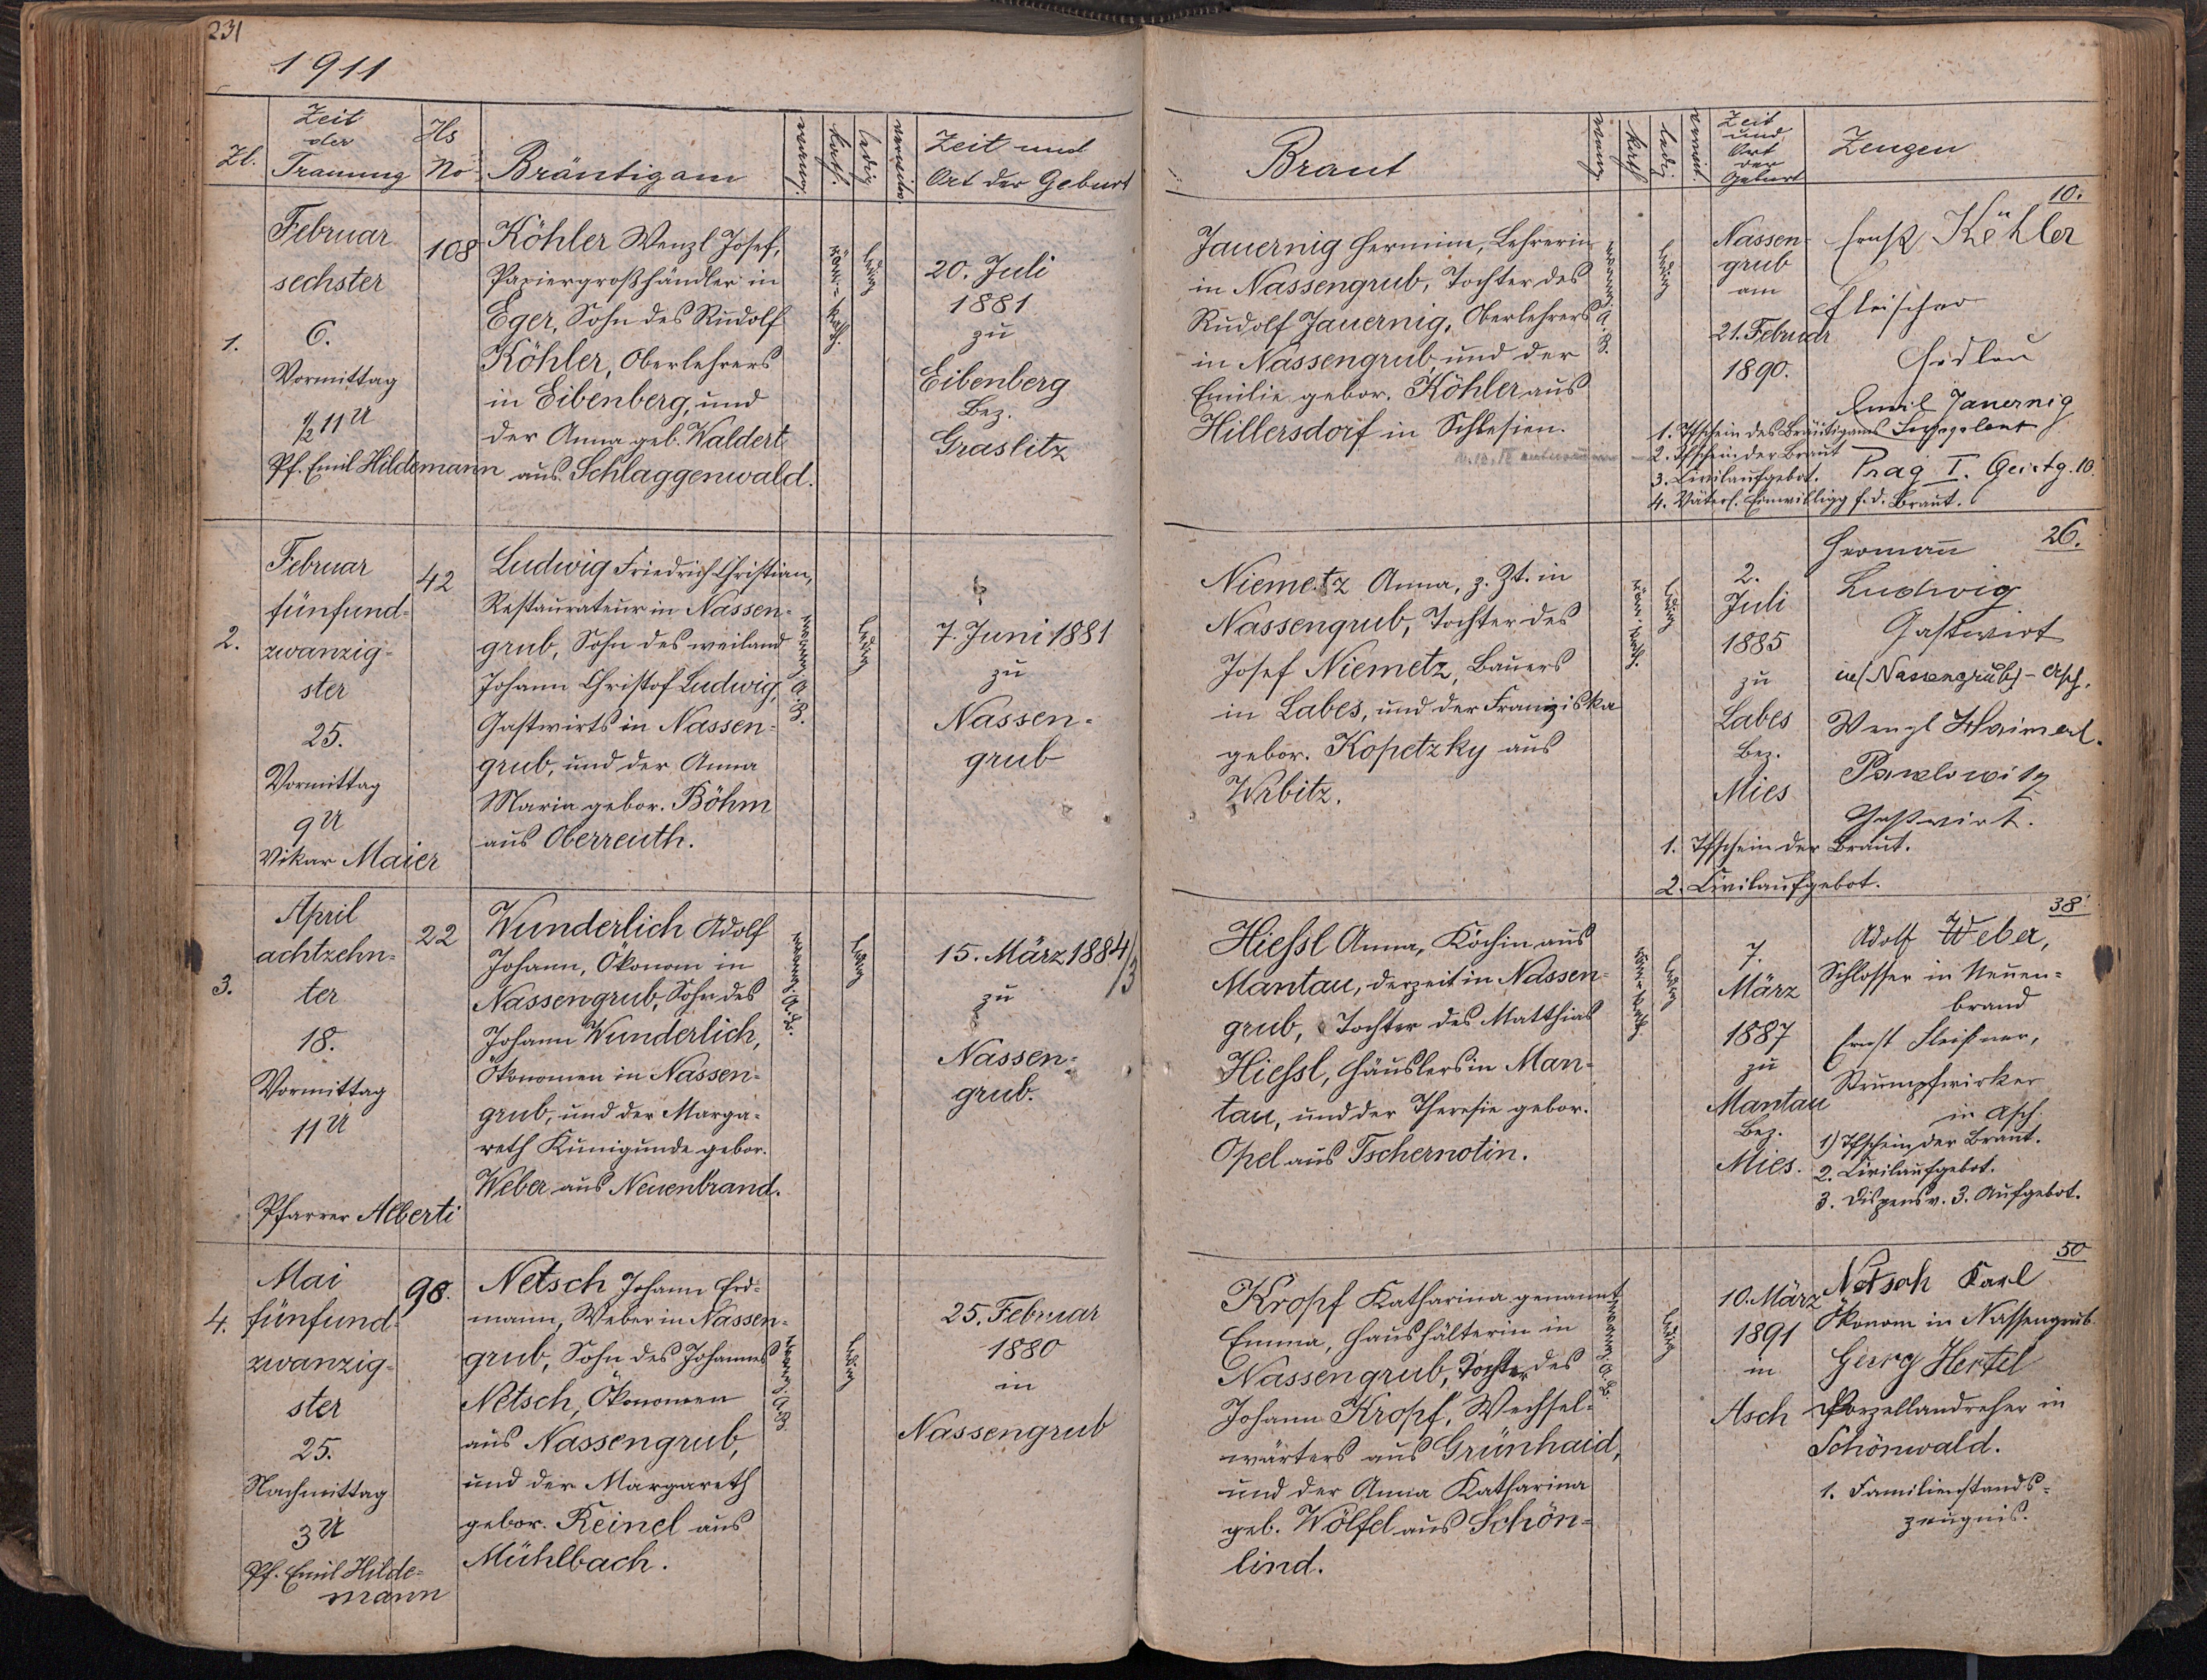 231
1911
Zl.
Zeit
der
Trauung
Hs
No
Bräutigam
evang.
kath.
ledig
verwitw.
Zeit und
Ort der Geburt
Februar
sechster
1.
6.
Vormittag
½ 11 U
Pf. Emil Hildemann
108
Köhler Wenzl Josef,
Papiergroßhändler in
Eger, Sohn des Rudolf
Köhler, Oberlehrers
in Eibenberg, und
der Anna geb. Waldert
aus Schlaggenwald.
röm.-kath.
ledig
20. Juli
1881
zu
Eibenberg
Bez.
Graslitz
Februar
fünfund-
2. zwanzig-
ster
25.
Vormittag
9 U
Vikar Maier
42
Ludwig Friedrich Christian,
Restaurateur in Nassen-
grub, Sohn des weiland
Johann Christof Ludwig,
Gastwirts in Nassen-
grub, und der Anna
Maria gebor. Böhm
aus Oberreuth.
evang. A. B.
ledig
7. Juni 1881
zu
Nassen-
grub
April
achtzehn-
3. ter
18.
Vormittag
11 U
Pfarrer Alberti
22
Wunderlich Adolf
Johann, Ökonom in
Nassengrub, Sohn des
Johann Wunderlich,
Ökonomen in Nassen-
grub, und der Marga-
reth Kunigunde gebor.
Weber aus Neuenbrand.
evang. A. B.
ledig
15. März 1884/3
zu
Nassen-
grub.
Mai
4. fünfund-
zwanzig-
ster
25.
Nachmittag
3 U
Pf. Emil Hilde-
mann
98.
Netsch Johann Erd-
mann, Weber in Nassen-
grub, Sohn des Johannes
Netsch, Ökonomen
aus Nassengrub,
und der Margareth
gebor. Keinel aus
Mühlbach.
evang. A. B.
ledig
25. Februar
1880
in
Nassengrub
Braut
evang.
kath.
ledig
verwit.
Zeit
und
Ort
der
Geburt
Zeugen
Jauernig Hermine, Lehrerin
in Nassengrub, Tochter des
Rudolf Jauernig, Oberlehrers
in Nassengrub und der
Emilie gebor. Köhler aus
Hillersdorf in Schlesien.
evang. A. B.
ledig
Nassen-
grub
am
21. Februar
1890.
10.
Ernst Köhler
Fleischer
Emil Jauernig
Prag I. Geistg. 10.
1. Tfschein des Bräutigams
2. Tfschein der Braut
3. Civilaufgebot.
4. Väterl. Einwilligg f. d. Braut.
Niemetz Anna, z. Zt. in
Nassengrub, Tochter des
Josef Niemetz, Bauers
in Labes, und der Franziska
gebor. Kopetzky aus
Wrbitz.
röm.-kath.
ledig
2.
Juli
1885
zu
Labes
Bez.
Mies
26.
Hermann
Ludwig
Gastwirt
in (Nassengrub) - Asch.
Wenzl
Pawlowitz
Gastwirt.
1. Tfschein der Braut.
2. Civilaufgebot.
Hießl Anna, Köchin aus
Mantau, derzeit in Nassen-
grub, Tochter des Matthias
Hießl, Häuslers in Man-
tau, und der Theresie gebor.
Opel aus Tschernotin.
röm.-kath.
ledig
7.
März
1887
zu
Mantau
Bez.
Mies.
38.
Adolf Weber,
Schlosser in Neuen-
brand
Ernst Fleißner,
Strumpfwirker
in Asch.
1) Tfschein der Braut.
2. Civilaufgebot.
3. Dispens v. 3. Aufgebot.
Kropf Katharina genannt
Emma, Haushälterin in
Nassengrub, Tochter des
Johann Kropf, Wechsel-
wärters aus Grünhaid,
und der Anna Katharina
geb. Wölfel aus Schön-
lind.
evang. A. B.
ledig
10. März
1891
in
Asch
50
Netsch Karl
Ökonom in Nassengrub
Georg Hertel
Porzellandreher in
Schönwald.
1. Familienstands-
zeugnis.